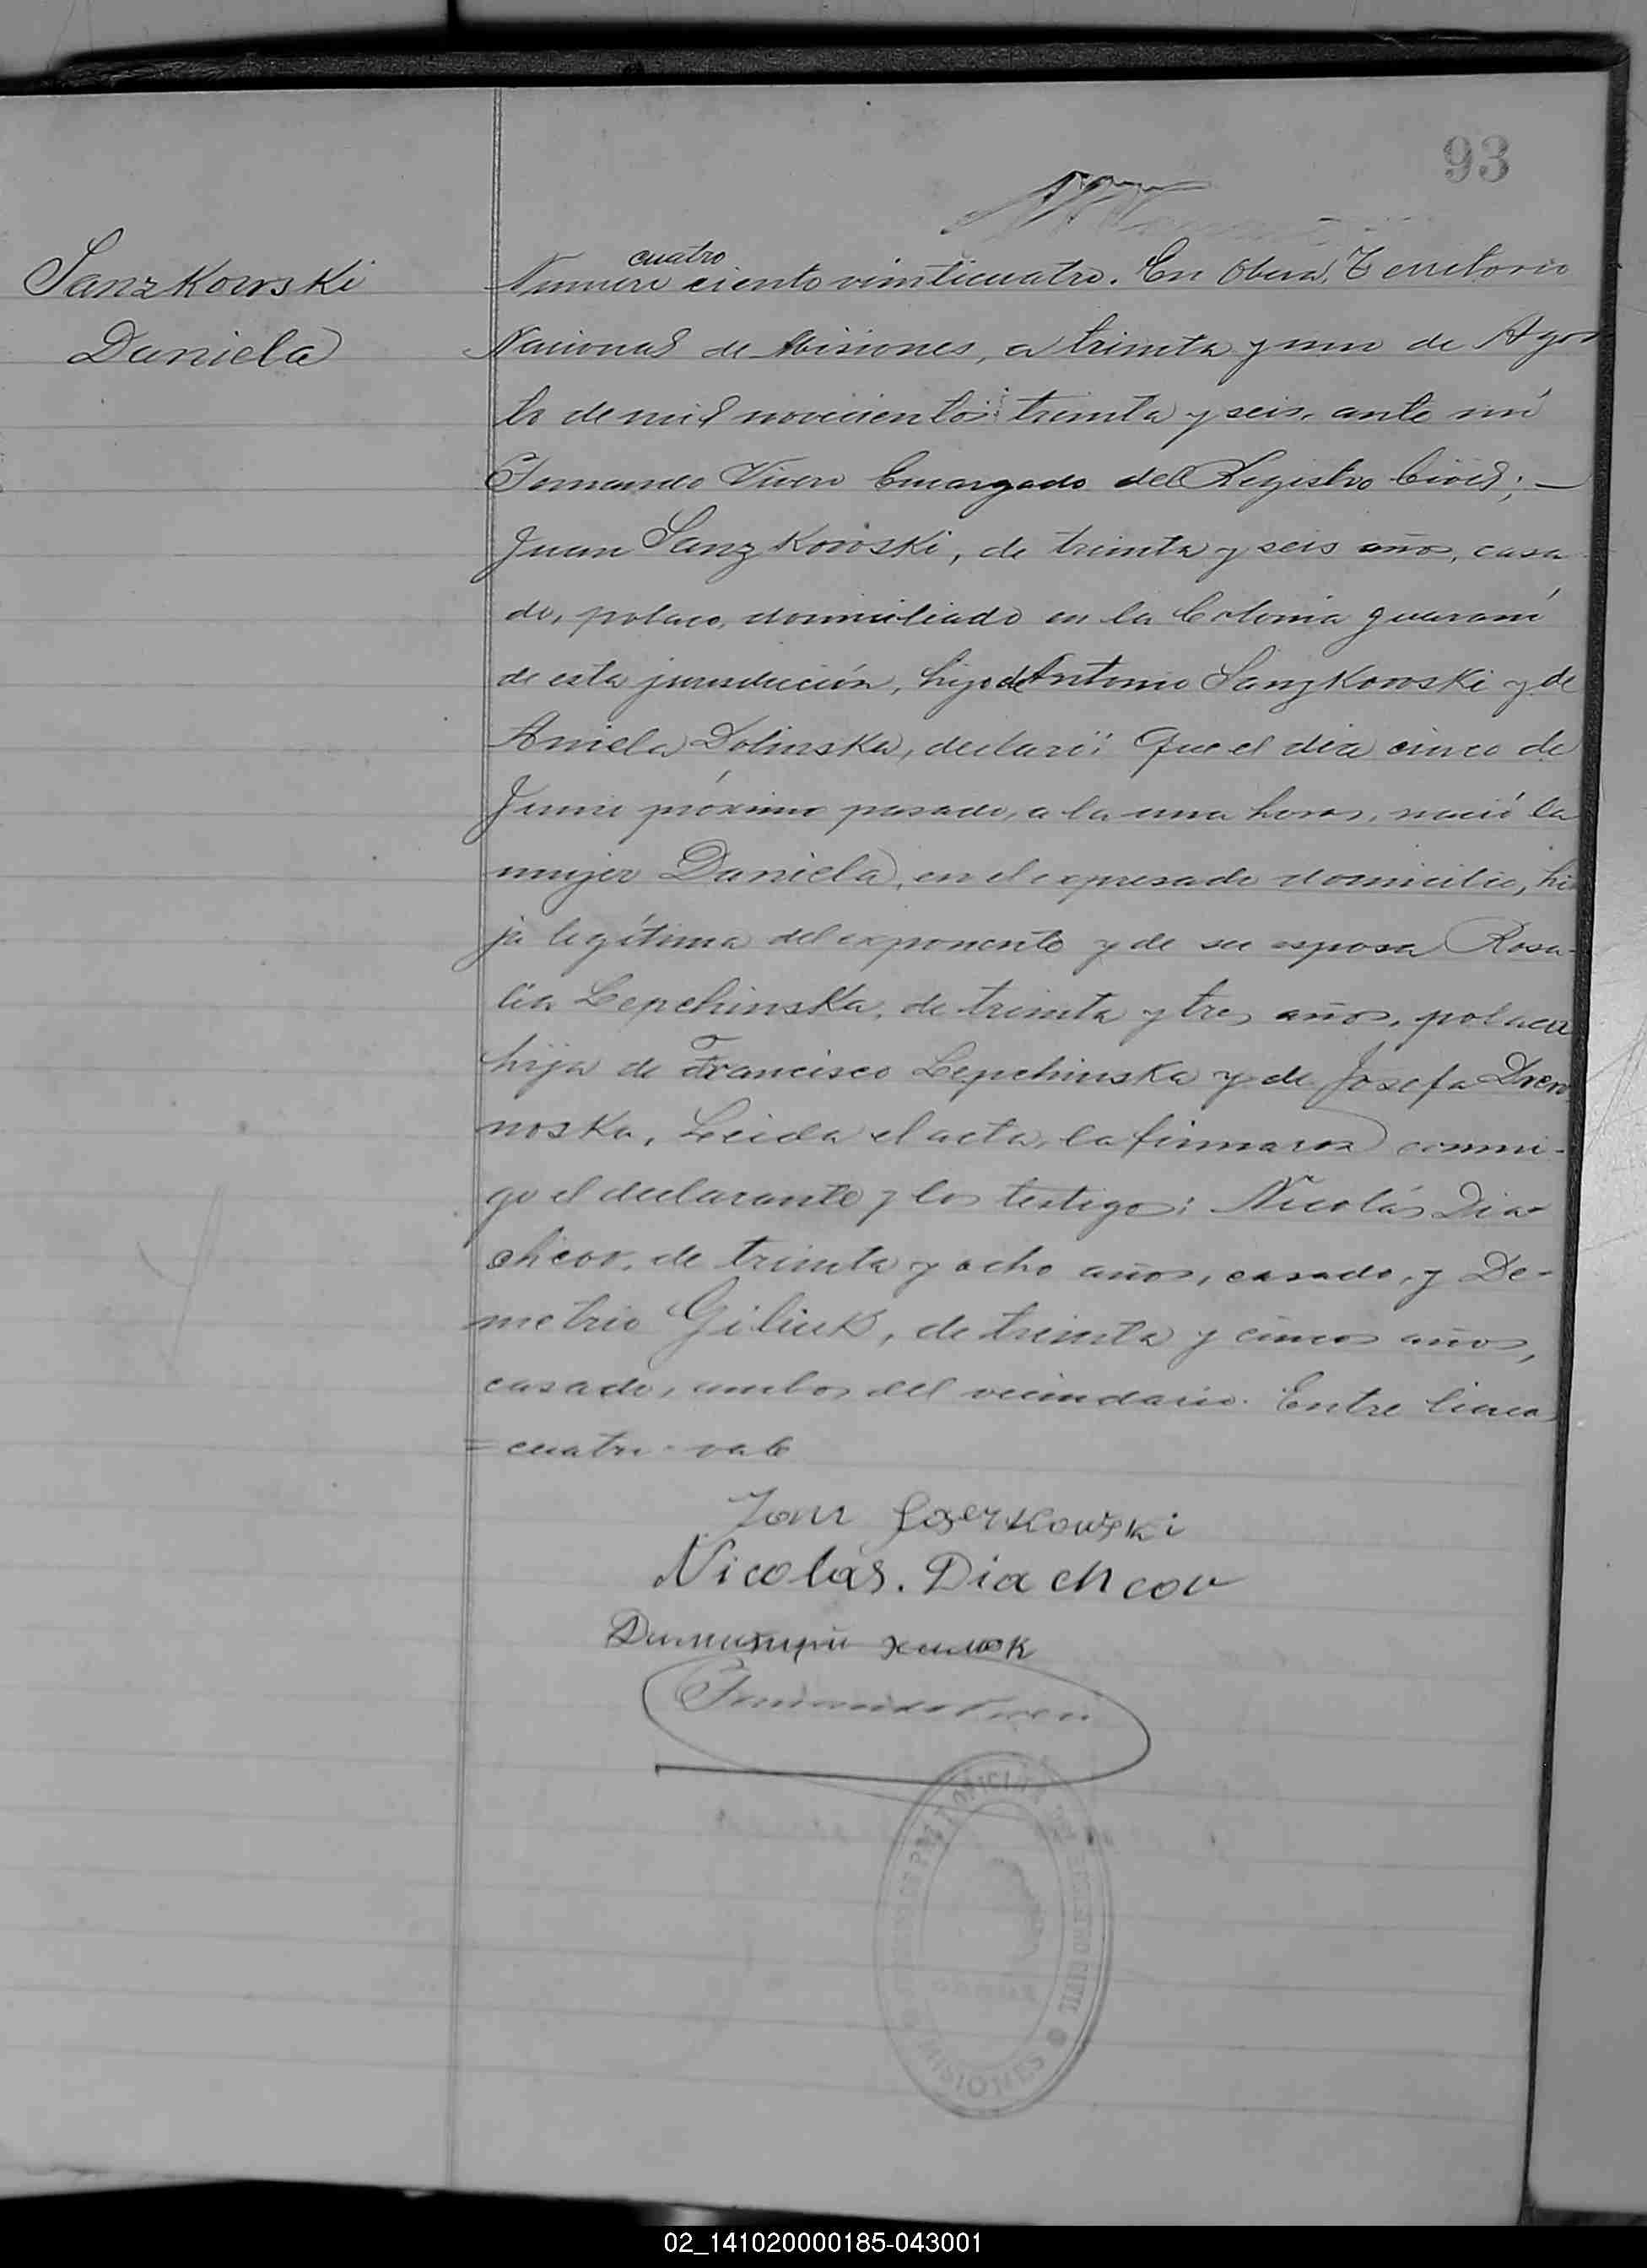 93
Sanzkowski
Daniela
cuatro
Número ciento veinticuatro. En Oberá, Territorio
Nacional de Misiones, a treinta y uno de Agos
to de mil novecientos treinta y seis, ante mí
Fernando Vivero Encargado del Registro Civil; —
Juan Sanzkowski, de treinta y seis años, casa
do, polaco, domiciliado en la Colonia guaraní
de esta jurisdicción, hijo de Antonio Sanzkowski y de
Aniela Dolinska, declaró: Que el día cinco de
Junio próximo pasado, a la una horas, nació la
mujer Daniela, en el expresado domicilio, hi
ja legítima del exponente y de su esposa Rosa-
lía Lepchinska, de treinta y tres años, polaca
hija de Francisco Lepchinska y de Josefa Drew
noska. Leída el acta, la firmaron conmi-
go el declarante y los testigos: Nicolás Dia-
chcov, de treinta y ocho años, casado, y De-
metrio Giliuk, de treinta y cinco años,
casado, ambos del vecindario. Entre lineas
= cuatro - vale
Jan
Nicolás. Diachcov
Fernando Vivero
OFICINA DEL REGISTRO CIVIL
MISIONES
02_141020000185-043001